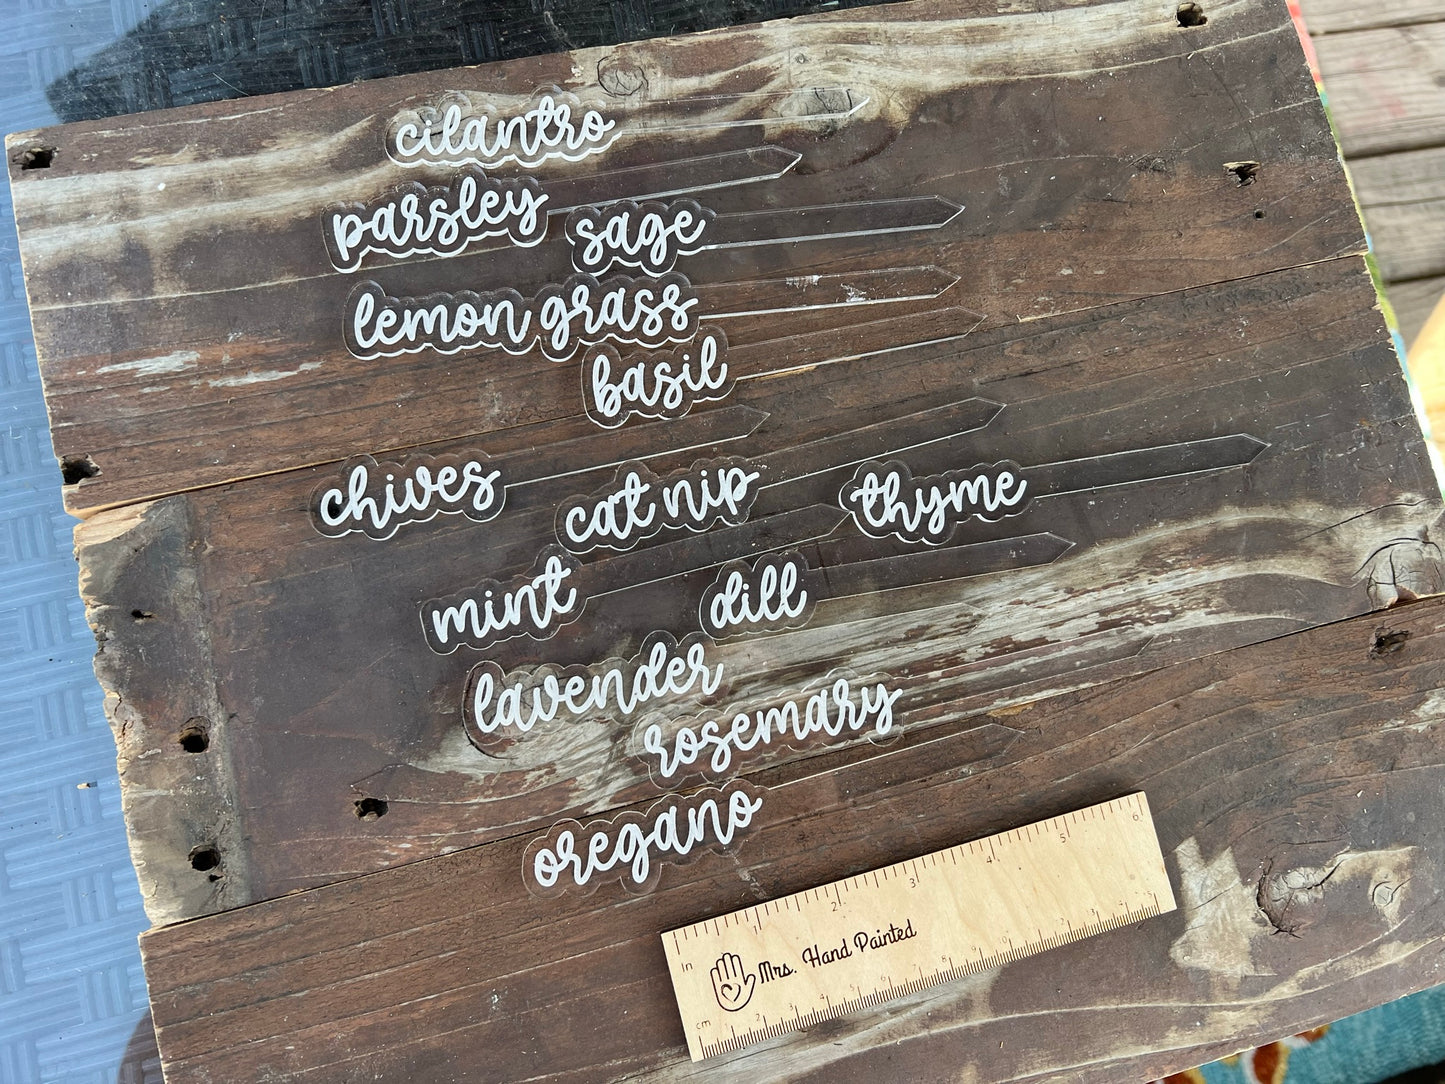 cilantro
parsley
sage
lemon grass
basil
chives
cat nip
thyme
mint
dill
lavender
rosemary
oregano
in 1 2 3 4 5 6
Mrs. Hand Painted
cm 1 2 3 4 5 6 7 8 9 10 11 12 13 14 15